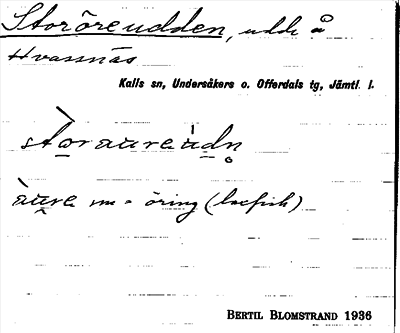 Storöreudden, udde å
Hvassnäs
Kalls sn, Undersåkers o. Offerdals tg, Jämtl. l.
stòraureúdn̥
àure m = öring (laxfisk)
BERTIL BLOMSTRAND 1936